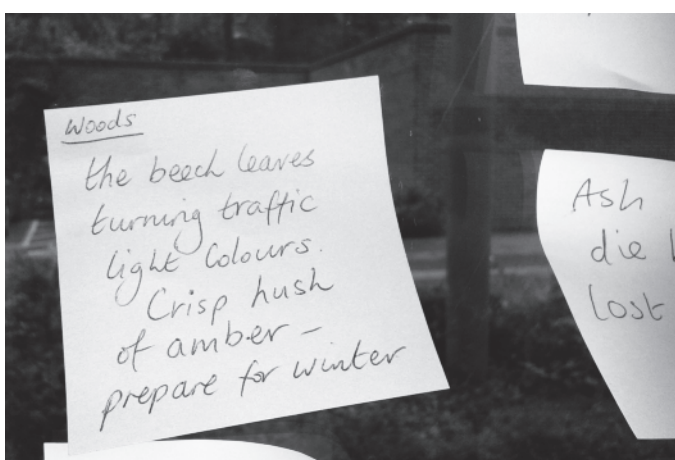 Woods
the beech leaves
turning traffic
light Colours.
Crisp hush
of amber –
prepare for winter
Ash
die
lost